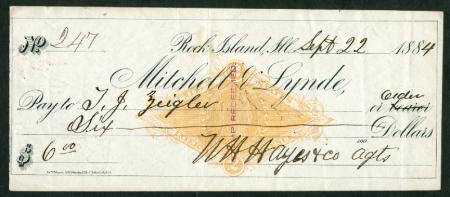 No 247
Rock Island, Ill. Sept 22 1884
Mitchell & Lynde,
Pay to T. J. Zeigler or Bearer Order
Six Dollars
$ 6 00 W H Hayes & co agts